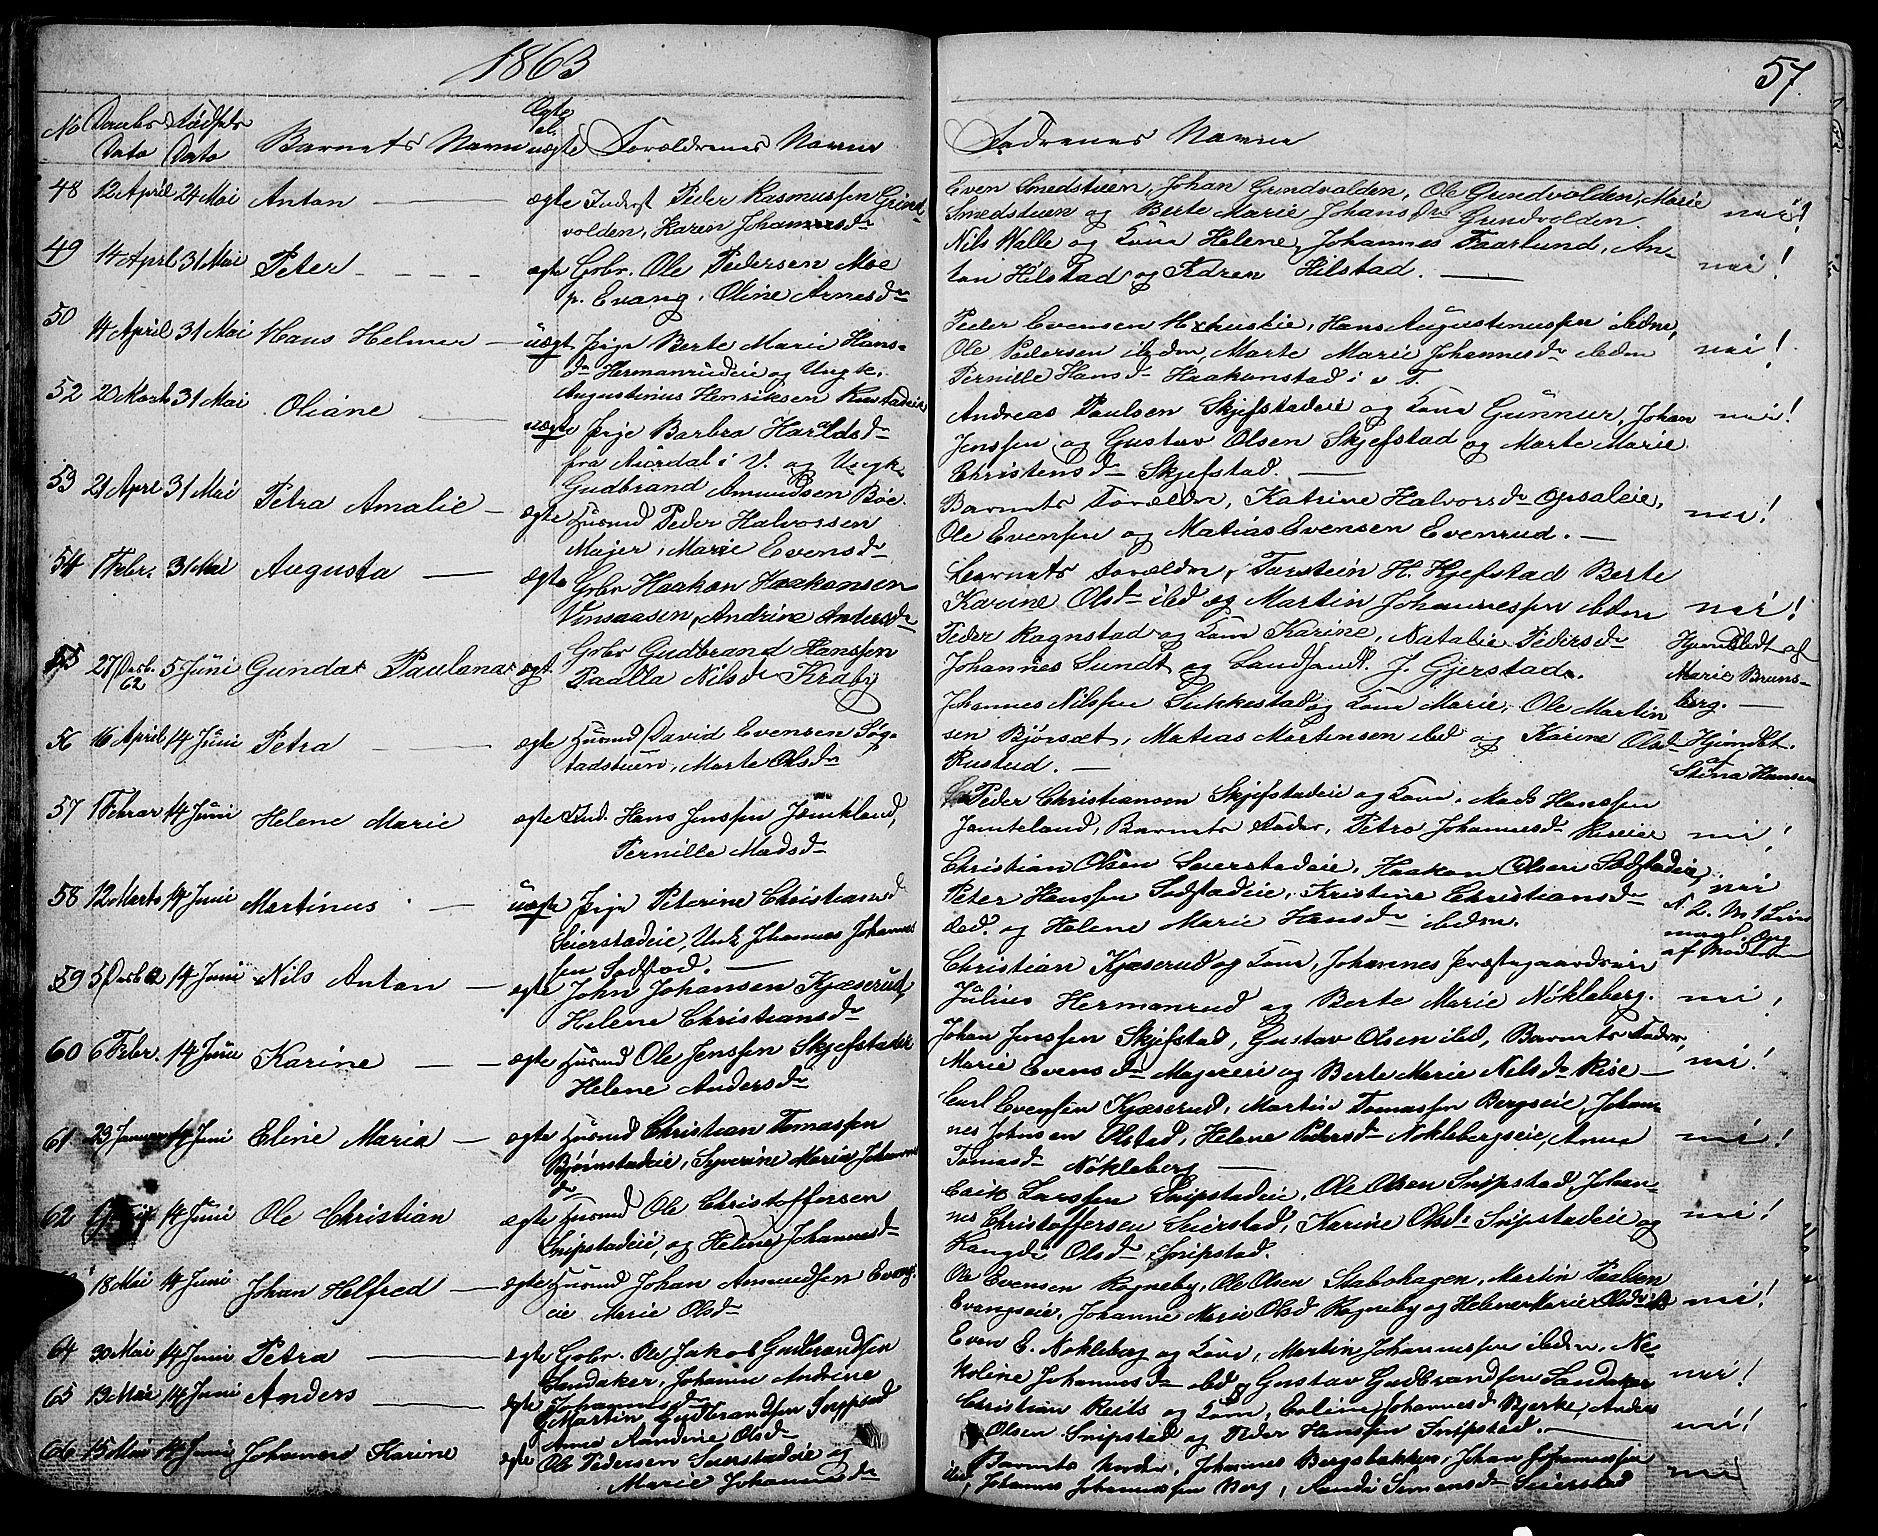 1863
57.
No Daabs Dato Fødsels Dato Barnets Navn Ægte el. uægte Forældrenes Navne
Fadrenes Navne
48 12 April 24 Mai Anton ægte Inderst Peder Rasmussen Grind
volden, Karen Johannesdr
Even Smedstuen, Johan Grindvolden, Ole Grindvolden, Marie
Smedstuen og Berte Marie Johansdr Grindvolden. nei!
49 14 April 31 Mai Peter ægte Gbr. Ole Pedersen Moe
p. Evang. Oline Arnesdr
Nils Walle og Kone Helene, Johannes Faarlund, An-
ton Hilstad og Karen Hilstad. nei!
50 14 April 31 Mai Hans Helmer uægt Pige Berte Marie Hans-
dr Hermanrudeie og Ungk.
Augustinus Henriksen Rustadeie
Peder Evensen, Hans Augustinussen ibdm,
Ole Pedersen ibdm, Marte Marie Johannesdr ibdm nei!
Pernille Hansdr Haakonstad i v. T.
52 20 Marts 31 Mai Oliane
uægte Pige Barbro Haraldsdr
fra Aurdal i V. og Ungk.
Gudbrand Amundsen Bøe.
Andreas Paulsen Skjefstadeie og Kone Gunnur, Johan nei!
Jenssen og Gustav Olsen Skjefstad og Marte Marie
Christensdr Skjefstad.
53 21 April 31 Mai Petra Amalie ægte Husmd Peder Halvorsen
Majer, Marie Evensdr
Barnets Forældre, Katrine Halvorsdr Opsaleie, nei!
Ole Evensen og Matias Evensen Evenrud.
54 1 Febr. 31 Mai Augusta ægte Gbr Haakon Haakonsen
Vinsaasen, Andrine Andersdr
Barnets Forældre, Torstein H. Hjefstad Berte
Karine Olsdr ibd og Martin Johannessen ibdm nei!
55 27 Decbr. 62 5 Juni Gunda Paulana ægt. Gbr Gudbrand Hanssen
Paalla Nilsdr Kraby
Peder Ragnstad og Kone Karine, Natalie Pedersdr
Johannes Sundt og Landhandl. J. Gjerstad.
Hjemdøbt af
Marie Bruns-
berg.
56 16 April 14 Juni Petra ægte Husmd David Evensen Søg-
stadstuen, Marte Olsdr
Johannes Nilssen Sukkestad og Kone Marie, Ole Martin
sen Bjørset, Matias Martinsen ibd og Karine Olsdr
Rustad.
Hjemdøbt
af
Stina Hansen
57 1 Februar 14 Juni Helene Marie ægte Ind. Hans Jenssen Jemtland,
Pernille Madsdr
Peder Christiansen Skjefstadeie og Kone, Mads Hanssen
Jemteland, Barnets Fader, Petra Johannesdr Riseeie nei!
58 12 Marts 14 Juni Martinus uægte Pige Peterine Christiansd
Seierstadeie, Unk Johannes Johannes
sen Sodstad.
Christian Olsen Seierstadeie, Haakon Olsen Sodstadeie,
Peter Hanssen Sodstadeie, Kristine Christiansdr nei
ibd. og Helene Marie Hansdr ibdm.
59 5 Decbr 14 Juni Nils Anton ægte John Johansen Kjæserud,
Helene Christiansdr
Christian Kjæserud og Kone, Johannes Præstegaardseie
Julius Hermanrud og Berte Marie Nøkleberg. nei,
60 6 Febr. 14 Juni Karine ægte Husmd Ole Jenssen Skjefstadeie
Helene Andersdr
Johan Jenssen Skjefstad, Gustav Olsen ibd, Barnets Fader,
Marie Evensdr Majereie og Berte Marie Nilsdr Rise nei!
61 23 Januar 14 Juni Eline Maria ægte Husmd Christian Tomassen
Bjørnstadeie, Syverine Maria Johannes
dr
Carl Evensen Kjæserud, Martin Tomassen Bergseie, Johan-
nes Johnsen Olstad, Helene Pedersdr Nøklebergseie, Anna nei!
Tomasdr Nøkleberg
62 14 Juni Ole Christian ægte Husmd Ole Christoffersen
Snipstadeie, og Helene Johannesdr
Erik Larssen Snipstadeie, Ole Olsen Snipstad, Johan-
nes Christoffersen Seierstad, Karine Olsdr Snipstadeie og nei!
Olsdr Snipstad.
18 Mai 14 Juni Johan Helfred ægte Husmd Johan Amundsen Evangs-
eie Marie Olsdr
Ole Evensen Rogneby, Ole Olsen Stabohagen, Martin Paalsen
Evangseie, Johanne Marie Olsd Rogneby og Helene Marie Olsdr nei!
64 30 Mai 14 Juni Petra ægte Gbr. Ole Jakob Gudbrandsen
Sandaker, Johanne Andrine
Johannesd
Even E. Nøkleberg og Kone, Martin Johannessen ibdm, Ne-
koline Johannesdr ibd og Gustav Gudbrandsen Sandaker nei!
65 13 Mai 14 Juni Anders ægte Martin Gudbrandsen Snipstad
Anne Olsdr
Christian Reits og Kone, Eveline Johannesd Bjerke, Anders
Olsen Snipstad og Peder Hanssen Snipstad. nei!
66 15 Mai 14 Juni Johanne Karine ægte Ole Pedersen Seierstadeie og
Marie Johannesdr
Barnets Moder, Johannes Bergsbakken, Johan Johannessen
ibd, Johannes Johannessen Berg, Randi Simensdr Seierstad nei